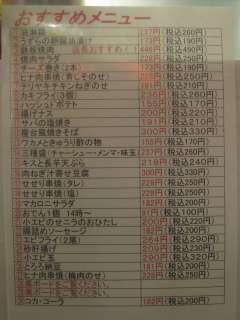 おすすめメニュー
237円(税込260円)
うずらの卵 173円(税込190円)
鉄板焼肉 店長おすすめ! 446円(税込490円)
焼肉サラダ 228円(税込250円)
チーズ巻き(2本) 173円(税込190円)
ヒナ肉串焼(青じそのせ) 228円(税込250円)
テリヤキチキンねぎのせ 191円(税込210円)
カキフライ(3個) 236円(税込260円)
ハッシュドポテト 155円(税込170円)
揚げナス 200円(税込220円)
サバの塩焼き 210円(税込230円)
屋台風焼きそば 300円(税込330円)
ワカメときゅうり酢の物 155円(税込170円)
三種盛(チャーシュー・メンマ・味玉) 237円(税込260円)
キスと長芋天ぷら 219円(税込240円)
肉ねぎ汁寄せ豆腐 300円(税込330円)
せせり串焼(タレ) 228円(税込250円)
せせり串焼(塩) 228円(税込250円)
マカロニサラダ 182円(税込200円)
おでん1個 14時〜 91円(税込100円)
小エビのせニラのおひたし 200円(税込220円)
腸詰めソーセージ 182円(税込200円)
エビフライ(2尾) 264円(税込290円)
砂肝揚げ 300円(税込330円)
小エビ玉 290円(税込320円)
とろろ納豆 181円(税込200円)
ヒナ肉串焼(梅肉のせ) 228円(税込250円)
黒板ボードをご覧ください。
黒板ボードをご覧ください。
コカ・コーラ 182円(税込200円)